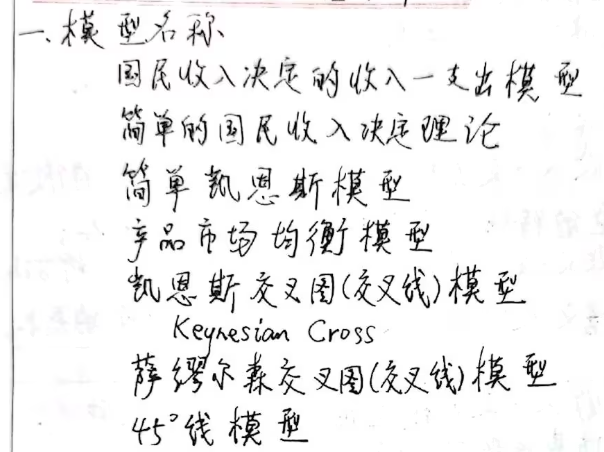 一、模型名称
国民收入决定的收入一支出模型
简单的国民收入决定理论
简单凯恩斯模型
产品市场均衡模型
凯恩斯交叉图(交叉线)模型
Keynesian Cross
萨缪尔森交叉图(交叉线)模型
45°线模型